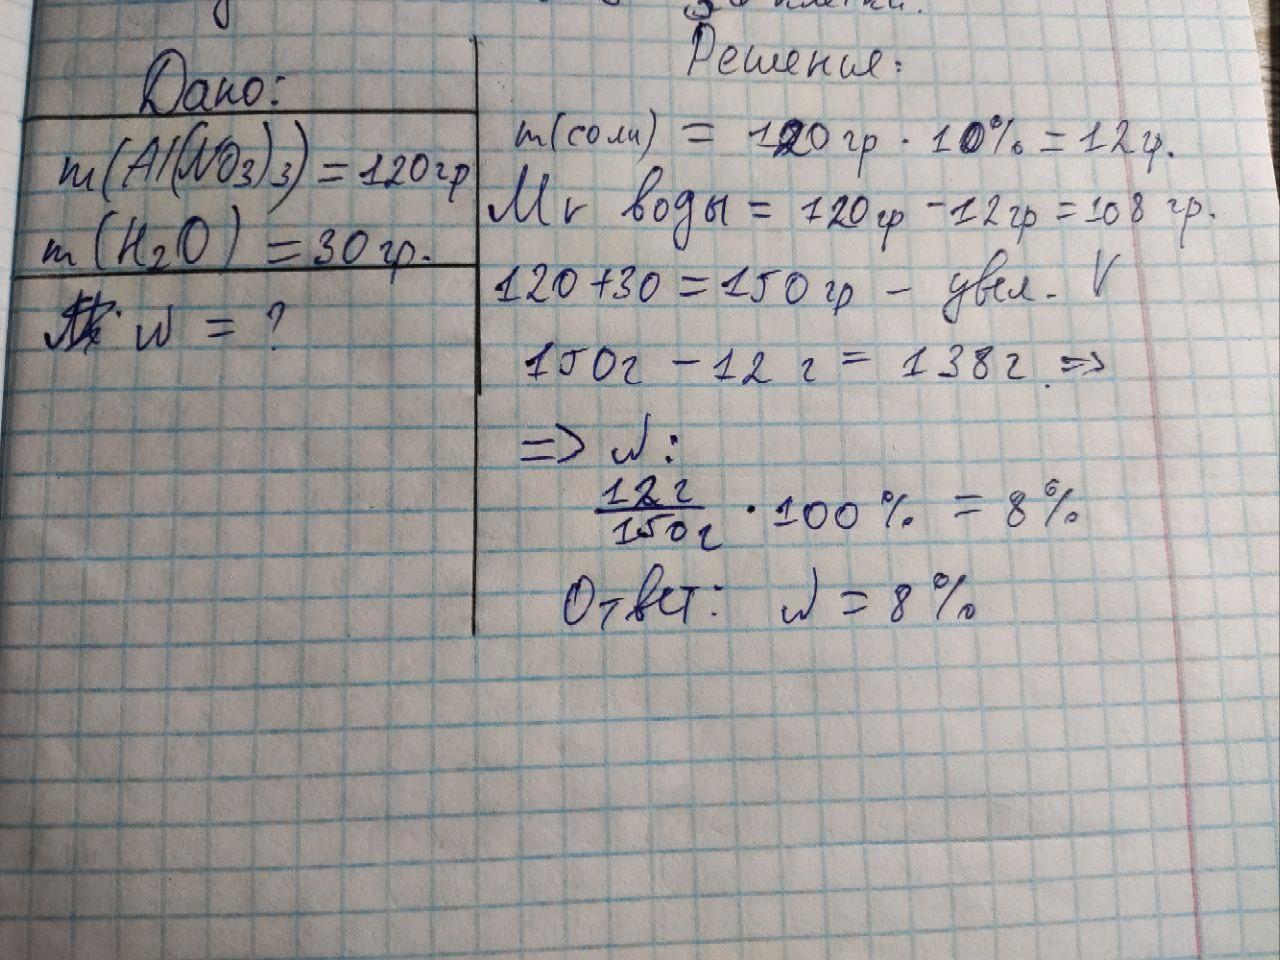 Дано:
m(Al(NO3)3) = 120гр
m(H2O) = 30гр.
w = ?
Решения:
m(соли) = 120гр · 10% = 12гр.
Mr воды = 120гр - 12гр = 108 гр.
120+30 = 150гр - увел. V
150г - 12 г = 138г. =>
=> w:
12г
150г · 100% = 8%
Ответ: w = 8%